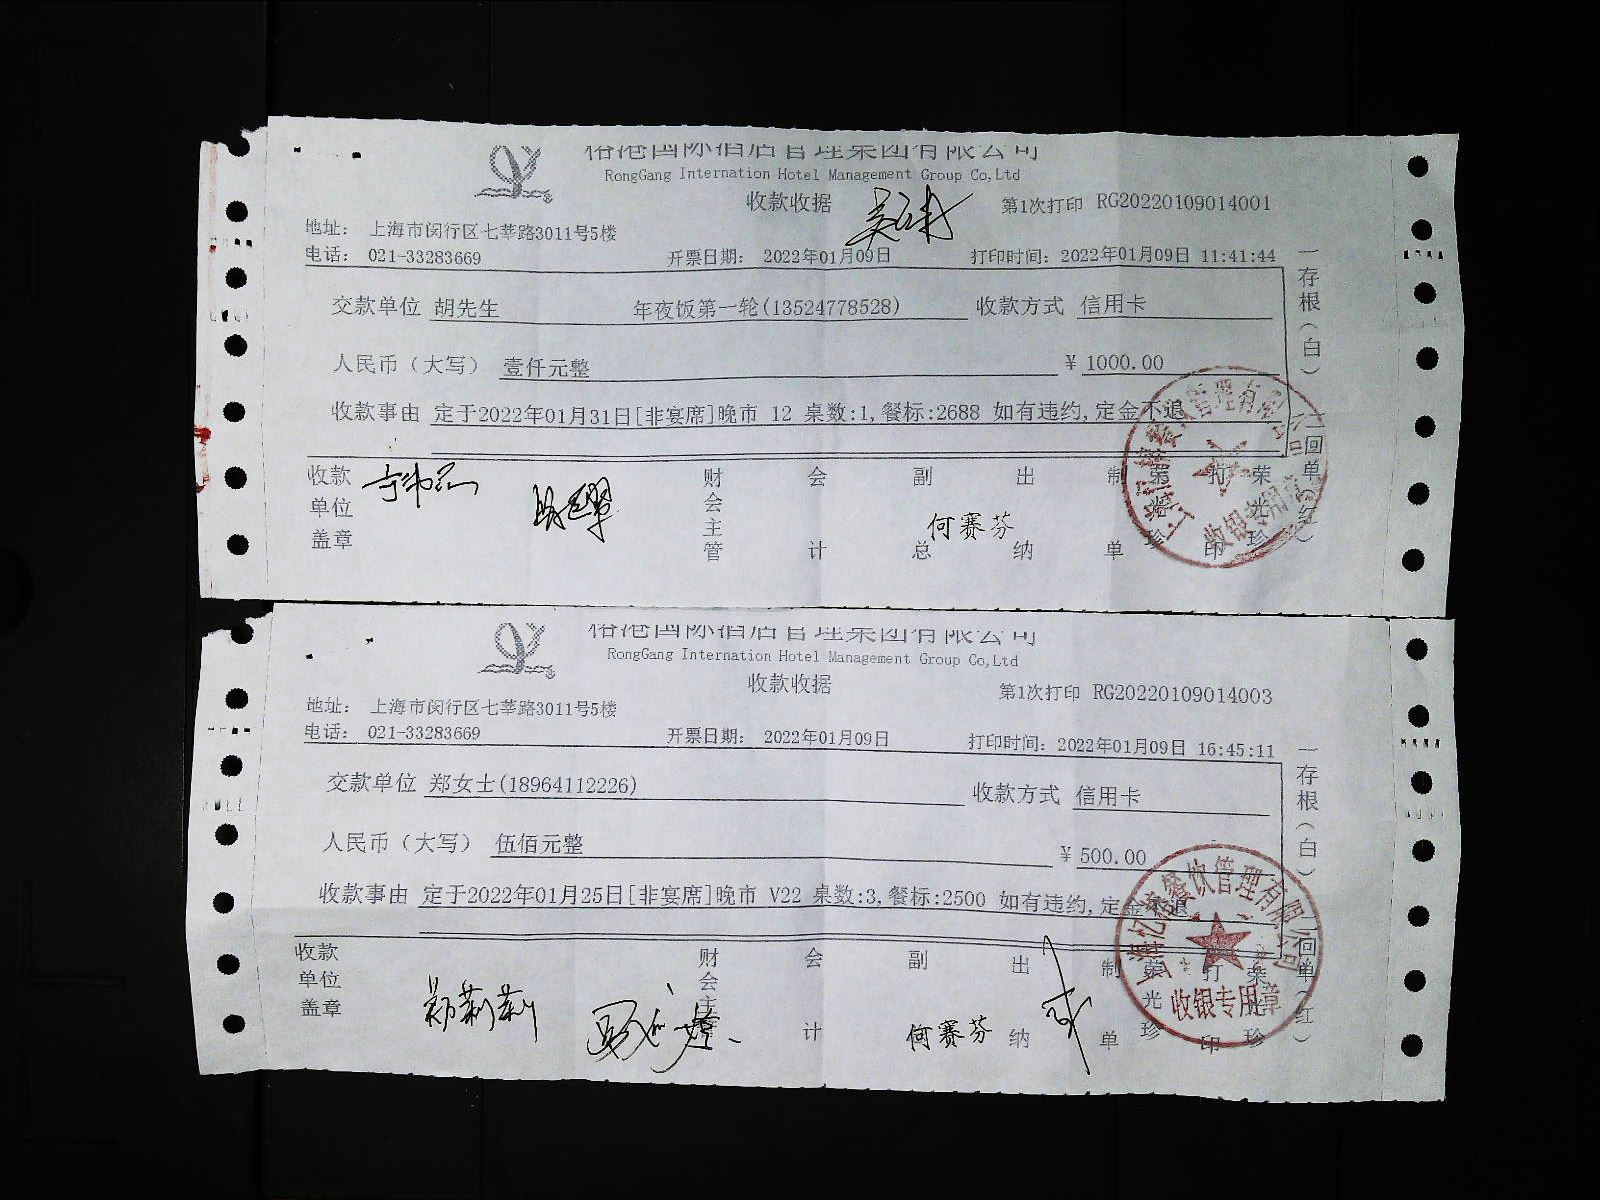 榕港国际酒店管理集团有限公司
RongGang Internation Hotel Management Group Co,Ltd
收款收据
第1次打印 RG20220109014001
地址： 上海市闵行区七莘路3011号5楼
电话： 021-33283669 开票日期： 2022年01月09日 打印时间：2022年01月09日 11:41:44
交款单位 胡先生 年夜饭第一轮(13524778528) 收款方式 信用卡
人民币（大写） 壹仟元整 ￥1000.00
收款事由 定于2022年01月31日[非宴席]晚市 12 桌数:1,餐标:2688 如有违约,定金不退
收款单位盖章 财会主管 会计 副总 何赛芬 出纳 制单 荣光珍 打印 荣光珍
一存根（白） 二回单（红）
餐饮管理有限公司
收银专用章
榕港国际酒店管理集团有限公司
RongGang Internation Hotel Management Group Co,Ltd
收款收据
第1次打印 RG20220109014003
地址： 上海市闵行区七莘路3011号5楼
电话： 021-33283669 开票日期： 2022年01月09日 打印时间：2022年01月09日 16:45:11
交款单位 郑女士(18964112226) 收款方式 信用卡
人民币（大写） 伍佰元整 ￥500.00
收款事由 定于2022年01月25日[非宴席]晚市 V22 桌数:3,餐标:2500 如有违约,定金不退
收款单位盖章 郑莉莉 财会主管 会计 副总 何赛芬 出纳 制单 荣光珍 打印 荣光珍
一存根（白） 二回单（红）
餐饮管理有限公司
收银专用章